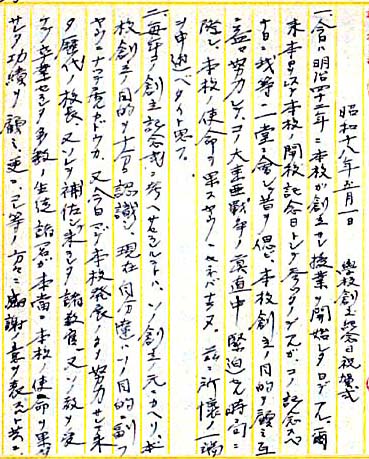 昭和十八年五月一日
學校創立紀念日祝賀式
一、今日ハ明治四十三年ニ本校が創立セラレ授業ヲ開始シタ日デアル、爾
来本日ヲ以テ本校ノ開校記念日トシテ参ツタノデスガ、コノ記念スベ
キ日ニ我等一堂ニ會シテ昔ヲ偲ビ、本校創立ノ目的ヲ顧ミ互
ニ益々努力シテ、コノ大東亜戦争ノ真道中緊迫セル時局ニ
際シ、本校ノ使命ヲ果スヤウニセネバナラヌ。茲ニ所懐ノ一端
ヲ申述ベタイト思フ。
二、毎年ノ創立記念式ニ考ヘサセラルルコトハ、ソノ創立ノ元ニカヘリ、本
校創立ノ目的ヲ十分ニ認識シ、現在自分達ハソノ目的ニ副フ
ヤウニナツテ居ルカドウカ、又今日マデ本校発展ノタメ努力サレテ来
タ歴代ノ校長、又ソレヲ補佐シ来ツタ諸教官、又ソノ教ヲ受
ケテ卒業セラレタ多数ノ生徒諸君が本当ニ本校ノ使命ヲ果
サレタ功績ヲ顧ミ、更ニ是等ノ方々ニ感謝ノ意ヲ表スルト共ニ